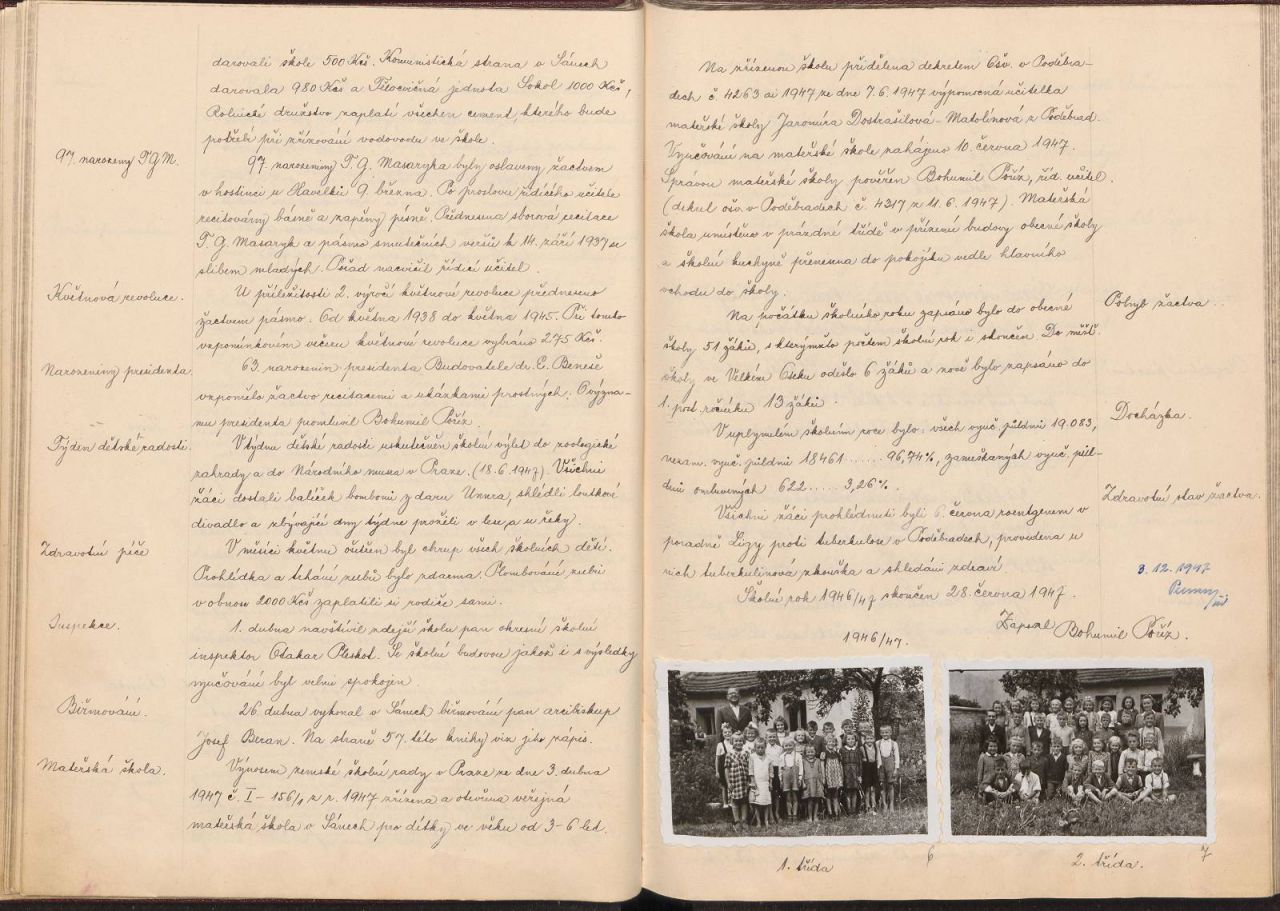 darovali škole 500 Kčs. Komunistická strana v Sánech
darovala 980 Kčs a Tělocvičná jednota Sokol 1000 Kčs,
Rolnické družstvo zaplatí všechen cement, kterého bude
potřebí při zřizování vodovodu ve škole.
97. narozeniny T.G.M.
97. narozeniny T. G. Masaryka byly oslaveny žactvem
v hostinci u Havelků 9. března. Po proslovu řídícího učitele
recitovány básně a zapěny písně. Přednesena sborová recitace
T. G. Masaryk a pásmo smutečních veršů k 14. září 1937 se
slibem mladých. Pořad nacvičil řídící učitel.
Květnová revoluce.
U příležitosti 2. výročí květnové revoluce předneseno
žactvem pásmo. Od května 1938 do května 1945. Při tomto
vzpomínkovém večeru květnové revoluce vybráno 275 Kčs.
Narozeniny presidenta.
63. narozenin presidenta Budovatele dr. E. Beneše
vzpomělo žactvo recitacemi a ukázkami prostných. O význa-
mu presidenta promluvil Bohumil Poříz.
Týden dětské radosti.
V týdnu dětské radosti uskutečněn školní výlet do zoologické
zahrady a do Národního musea v Praze. (18.6.1947). Všichni
žáci dostali balíček bombonů z daru Unrra, shlédli loutkové
divadlo a zbývající dny týdne prožili v lese a u řeky.
Zdravotní péče
V měsíci květnu ošetřen byl chrup všech školních dětí.
Prohlídka a trhání zubů bylo zdarma. Plombování zubů
v obnose 2000 Kčs zaplatili si rodiče sami.
Inspekce.
1. dubna navštívil zdejší školu pan okresní školní
inspektor Otakar Pleskot. Se školní budovou jakož i s výsledky
vyučování byl velmi spokojen.
Biřmování.
26. dubna vykonal v Sánech biřmování pan arcibiskup
Josef Beran. Na straně 57. této knihy viz jeho zápis.
Mateřská škola.
Výnosem zemské školní rady v Praze ze dne 3. dubna
1947 č. I – 156/1 z r. 1947 zřízena a otevřena veřejná
mateřská škola v Sánech pro dítky ve věku od 3–6 let.
Na zřízenou školu přidělena dekretem Ošv. v Poděbra-
dech č. 4263 ai 1947 ze dne 7.6.1947 výpomocná učitelka
mateřské školy Jaromíra Dostrašilová - Matolínová z Poděbrad.
Vyučování na mateřské škole zahájeno 10. června 1947.
Správou mateřské školy pověřen Bohumil Poříz, říd. učitel.
(dekret ošv. v Poděbradech č. 4317 z 11.6.1947). Mateřská
škola umístěna v prázdné třídě v přízemí budovy obecné školy
a školní kuchyně přenesena do pokojíku vedle hlavního
vchodu do školy.
Pohyb žactva.
Na počátku školního roku zapsáno bylo do obecné
školy 51 žáků, s kterýmžto počtem školní rok i skončen. Do měšť.
školy ve Velkém Oseku odešlo 6 žáků a nově bylo zapsáno do
1. post. ročníku 13 žáků.
Docházka.
V uplynulém školním roce bylo: všech vyuč. půldnů 19.083,
nezam. vyuč. půldnů 18461 ...... 96,74%, zameškaných vyuč. půl-
dnů omluvených 622 ..... 3,26%.
Zdravotní stav žactva.
Všichni žáci prohlédnuti byli 6. června roentgenem v
poradně Ligy proti tuberkulose v Poděbradech, provedena u
nich tuberkulinová zkouška a shledáni zdraví
Školní rok 1946/47 skončen 28. června 1947.
3.12.1947
Zapsal Bohumil Poříz.
1946/47.
1. třída
6
2. třída.
7